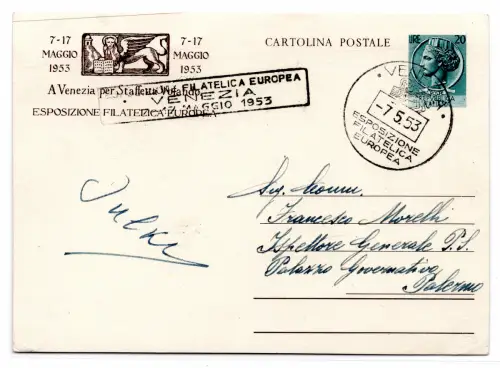 7-17
MAGGIO
1953
7-17
MAGGIO
1953
A Venezia per Staffetta
ESPOSIZIONE FILATELICA EUROPEA
FILATELICA EUROPEA
VENEZIA
MAGGIO 1953
CARTOLINA POSTALE
LIRE 20
-7.5.53
ESPOSIZIONE
FILATELICA
EUROPEA
Francesco Morelli
Ispettore Generale P.S.
Palazzo Governativo
Palermo